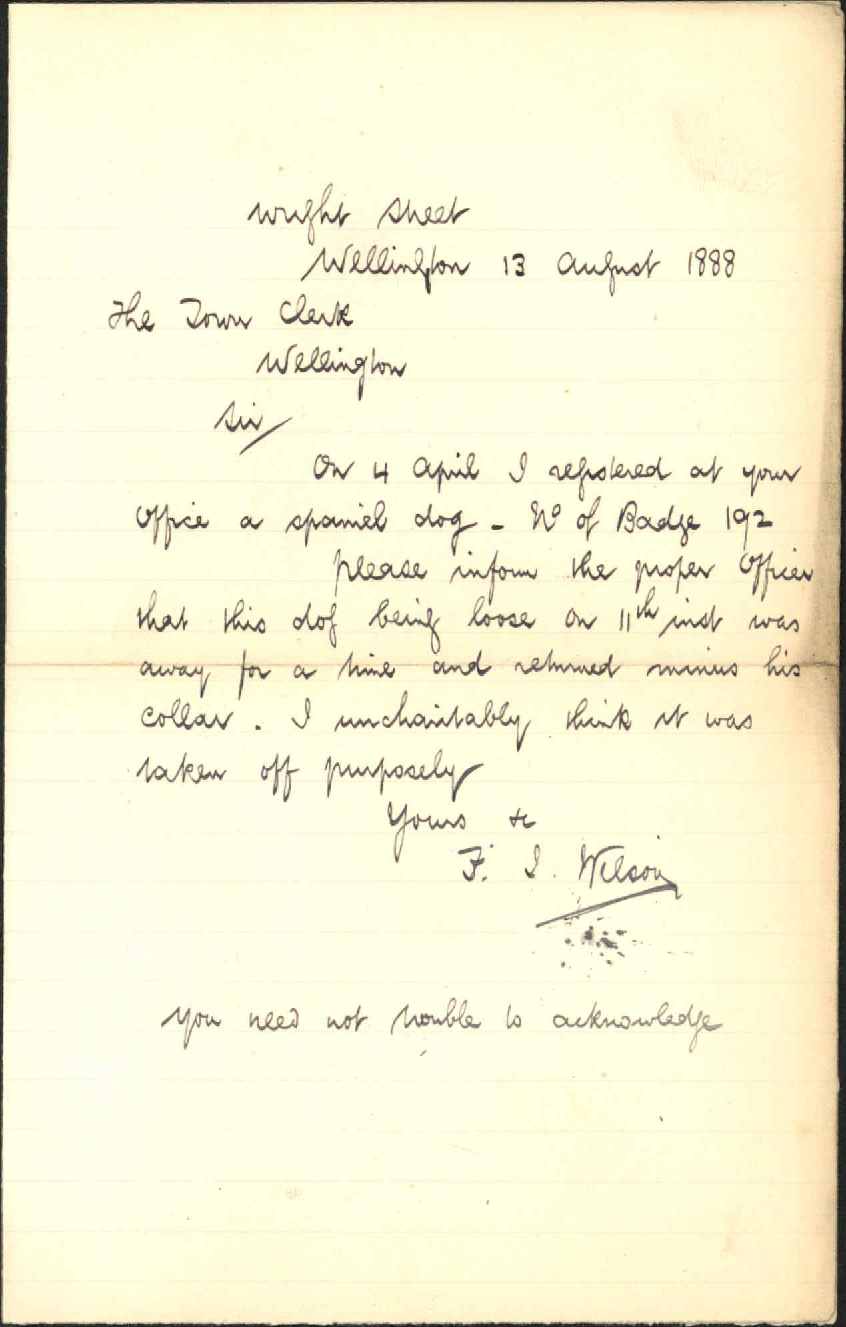 Wright Street
Wellington 13 August 1888
The Town Clerk
Wellington
Sir/
On 4 April I registered at your
Office a spaniel dog - No of Badge 192
please inform the proper Officer
that this dog being loose on 11th inst was
away for a time and returned minus his
collar. I uncharitably think it was
taken off purposely
Yours &c
F. I. Wilson
You need not trouble to acknowledge